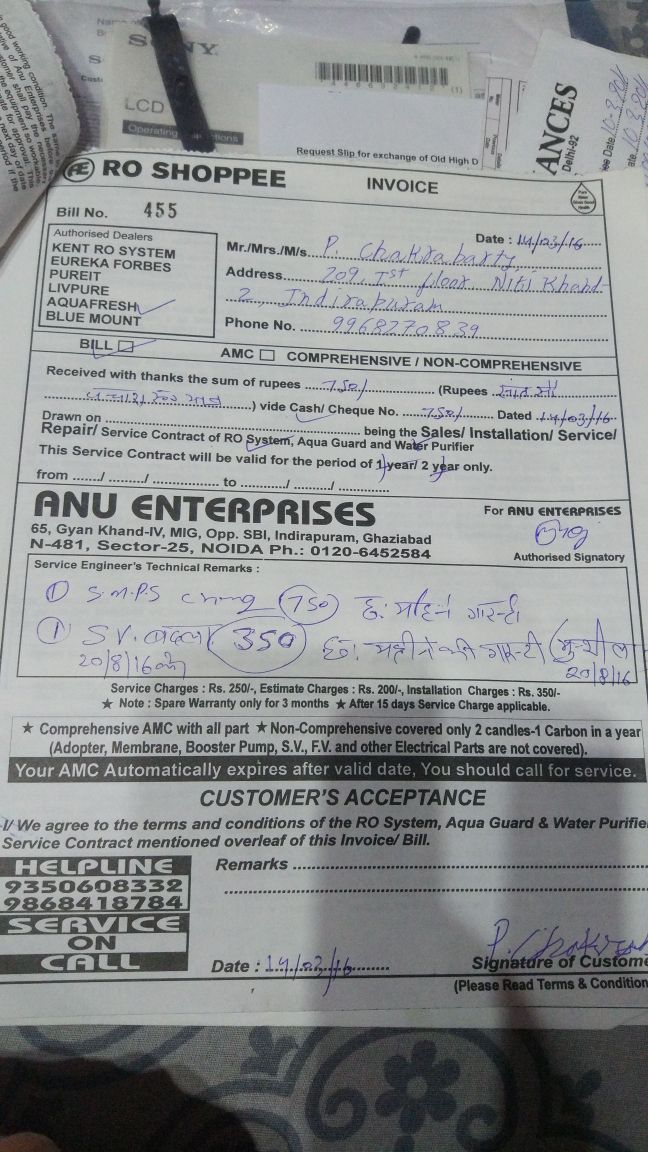 SONY
LCD
Operating Instructions
Request Slip for exchange of Old High D
ANCES
Delhi-92
RO SHOPPEE
INVOICE
Bill No. 455
Date : 14/03/16
Authorised Dealers
KENT RO SYSTEM
EUREKA FORBES
PUREIT
LIVPURE
AQUAFRESH
BLUE MOUNT
Mr./Mrs./M/s. P. Chakrabarty
Address 209, Ist floor Niti Khand-
2, Indirapuram
Phone No. 9968270839
BILL
AMC COMPREHENSIVE / NON-COMPREHENSIVE
Received with thanks the sum of rupees 750/ (Rupees सात सौ
पचास रु० मात्र) vide Cash/ Cheque No. 750/ Dated 14/03/16
Drawn on being the Sales/ Installation/ Service/
Repair/ Service Contract of RO System, Aqua Guard and Water Purifier
This Service Contract will be valid for the period of 1 year/ 2 year only.
from ....../....../............ to ........../......./............
ANU ENTERPRISES
65, Gyan Khand-IV, MIG, Opp. SBI, Indirapuram, Ghaziabad
N-481, Sector-25, NOIDA Ph.: 0120-6452584
For ANU ENTERPRISES
Authorised Signatory
Service Engineer's Technical Remarks :
① S.M.P.S Chang 750 छः महिने गारन्टी
① S.V. बदला 350 छः महीने की गारन्टी
20/8/16 को
20/8/16
Service Charges : Rs. 250/-, Estimate Charges : Rs. 200/-, Installation Charges : Rs. 350/-
★ Note : Spare Warranty only for 3 months ★ After 15 days Service Charge applicable.
★ Comprehensive AMC with all part ★ Non-Comprehensive covered only 2 candles-1 Carbon in a year
(Adopter, Membrane, Booster Pump, S.V., F.V. and other Electrical Parts are not covered).
Your AMC Automatically expires after valid date, You should call for service.
CUSTOMER'S ACCEPTANCE
I/ We agree to the terms and conditions of the RO System, Aqua Guard & Water Purifie
Service Contract mentioned overleaf of this Invoice/ Bill.
HELPLINE
9350608332
9868418784
SERVICE
ON
CALL
Remarks
Date : 14/03/16
Signature of Custome
(Please Read Terms & Condition